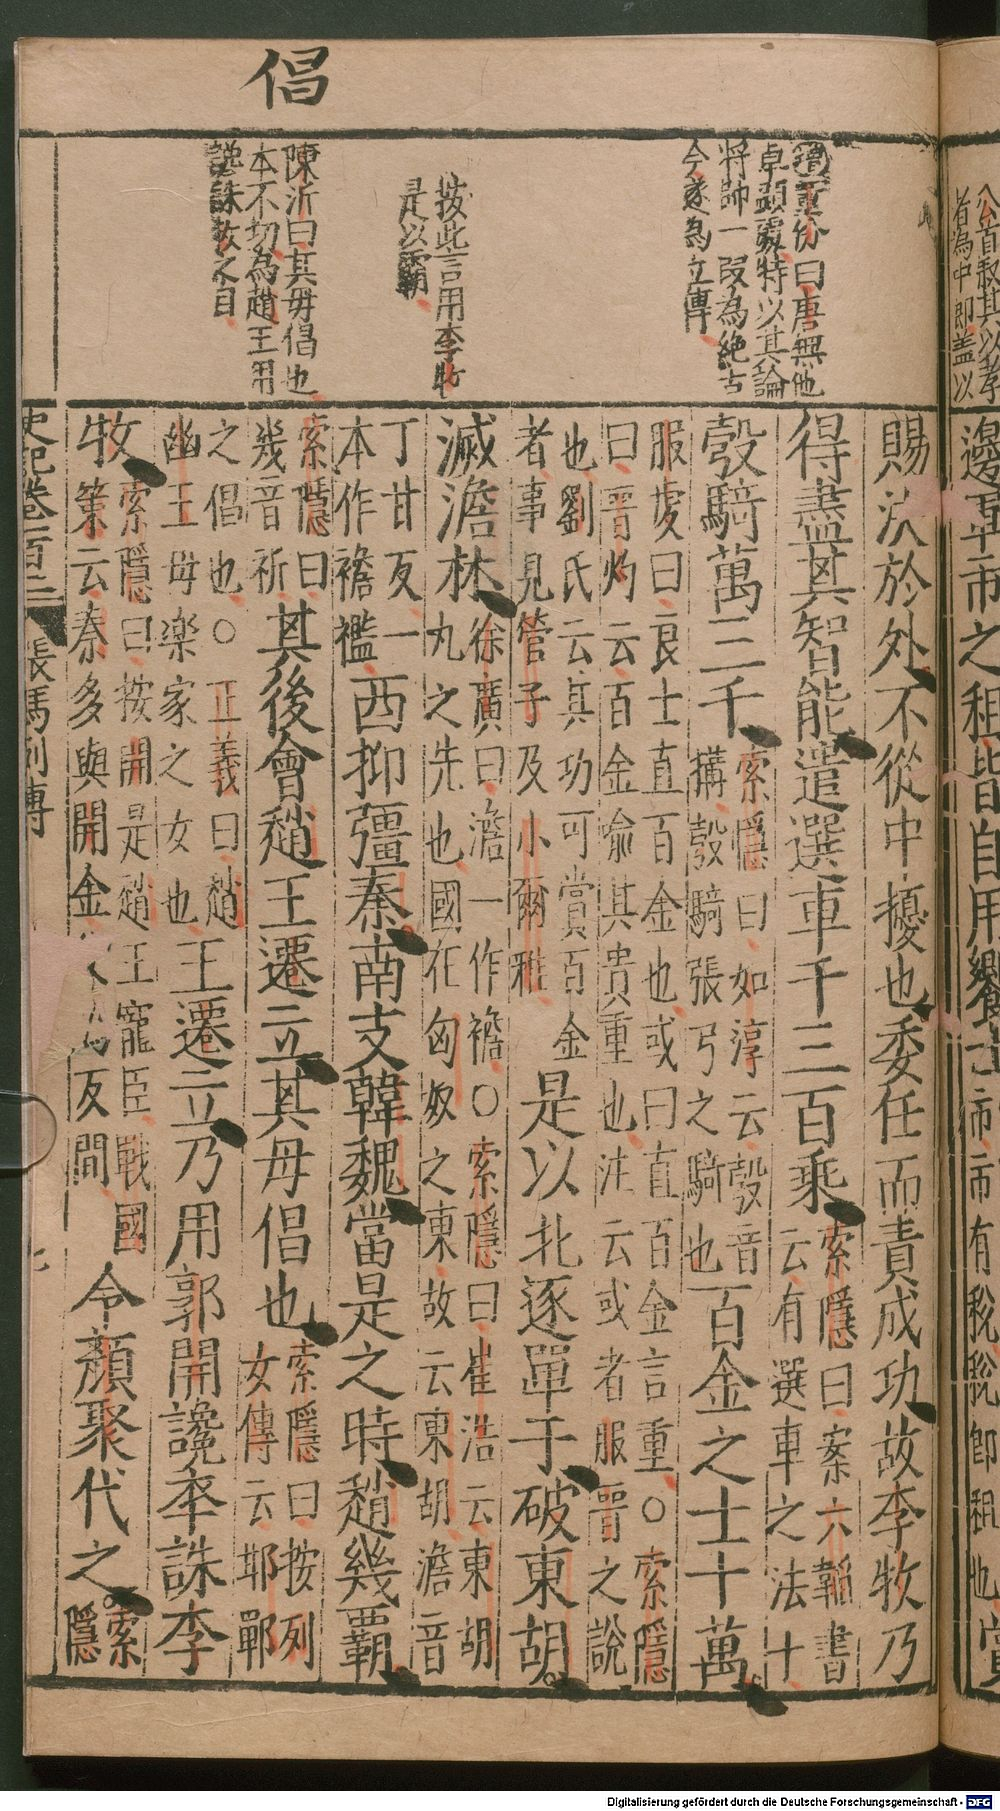 倡
董份曰唐無他
卓顯處特以其論
將帥一段為絶古
今遂為立傳
按此言用李牧
是以霸
陳沂曰其毋倡也
本不切為趙王用
讒誅牧之自
公首
者為中即盖以
邊軍市之租皆自用饗士市市有稅稅卽租也賞
賜决於外不從中擾也委任而責成功故李牧乃
得盡其智能遣選車千三百乘索隱曰案六韜書
云有選車之法十
彀騎萬三千索隱曰如淳云彀音
搆彀騎張弓之騎也百金之士十萬
服虔曰良士直百金也或曰直百金言重○索隱
曰晉灼云百金喻其貴重也注云或者服晉之說
也劉氏云其功可賞百金
者事見管子及小爾雅是以北逐單于破東胡
滅澹林徐廣曰澹一作襜○索隱曰崔浩云東胡
烏丸之先也國在匈奴之東故云東胡澹音
丁甘反一
本作襜襤西抑彊秦南支韓魏當是之時趙幾霸
索隱曰
幾音祈其後會趙王遷立其毋倡也索隱曰按列
女傳云邯鄲
之倡也○正義曰趙
幽王毋樂家之女也王遷立乃用郭開讒卒誅李
牧索隱曰按開是趙王寵臣戰國
策云秦多與開金 為反間令顏聚代之索
隱
史記卷一百二
張馮列傳
七
Digitalisierung gefördert durch die Deutsche Forschungsgemeinschaft - DFG